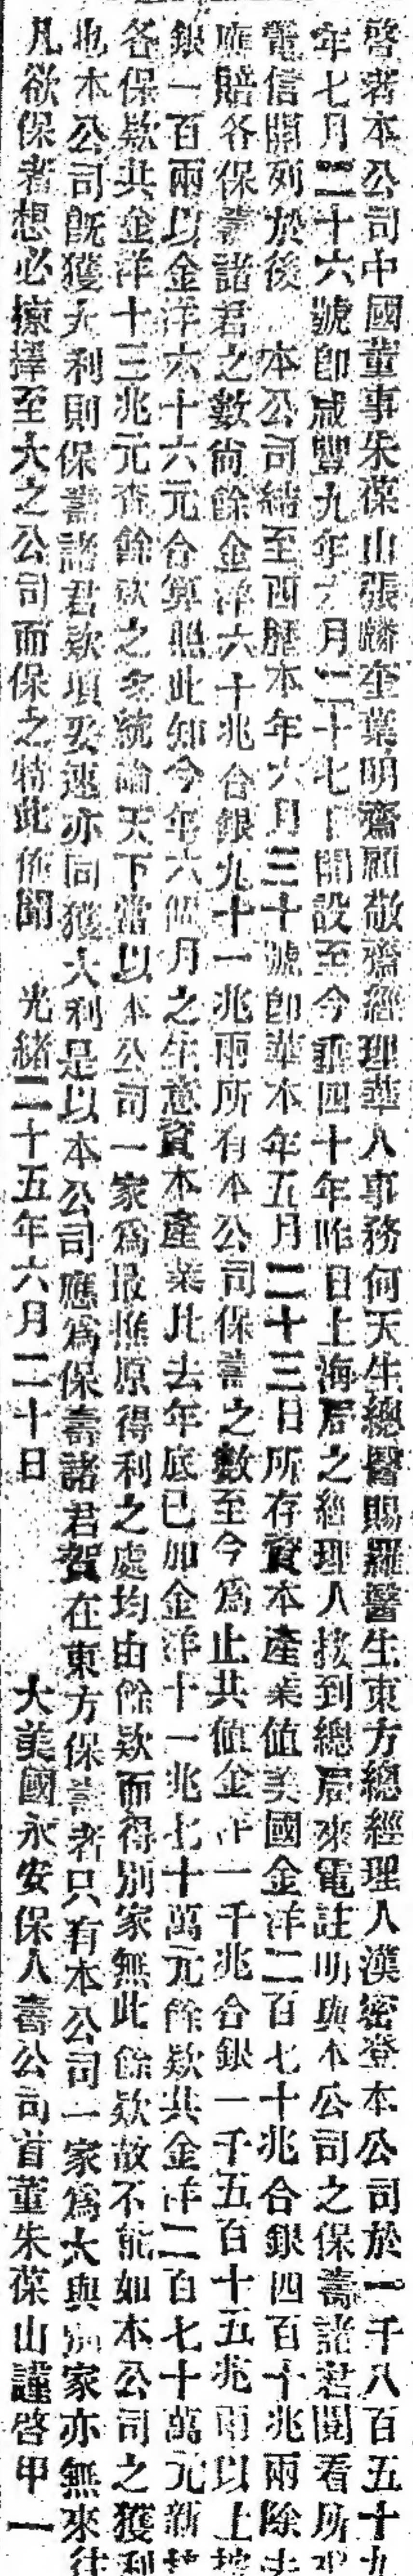 啓者本公司中國董事朱葆山張麟奎葉明齋顧敬齋經理華人事務何天生總醫賜羅醫生東方總經理人漢密登本公司於一千八百五十九
年七月二十六號即咸豐九年六月二十七日開設至今垂四十年昨日上海局之經理人接到總局來電註明與本公司之保壽諸君閱看所
電信開列於後 本公司結至西歷本年六月三十號即華本年五月二十三日所存資本產業值美國金洋二百七十兆合銀四百十兆兩除去
應賠各保壽諸君之數尚餘金洋六十兆合銀九十一兆兩所有本公司保壽之數至今為止共值金洋一千兆合銀一千五百十五兆兩以上按
銀一百兩以金洋六十六元合算照此知今年六個月之生意資本產業比去年底已加金洋十一兆七十萬元餘欵共金洋二百七十萬元新
各保欵共金洋十三兆元查餘欵之多統論天下當以本公司一家為最推原得利之處均由餘欵而得別家無此餘欵故不能如本公司之獲利
也本公司既獲大利則保壽諸君欵項妥速亦同獲大利是以本公司應為保壽諸君賀在東方保壽者只有本公司一家為大與別家亦無來往
凡欲保者想必揀擇至大之公司而保之特此佈聞 光緒二十五年六月二十日 大美國永安保人壽公司首董朱葆山謹啓甲一